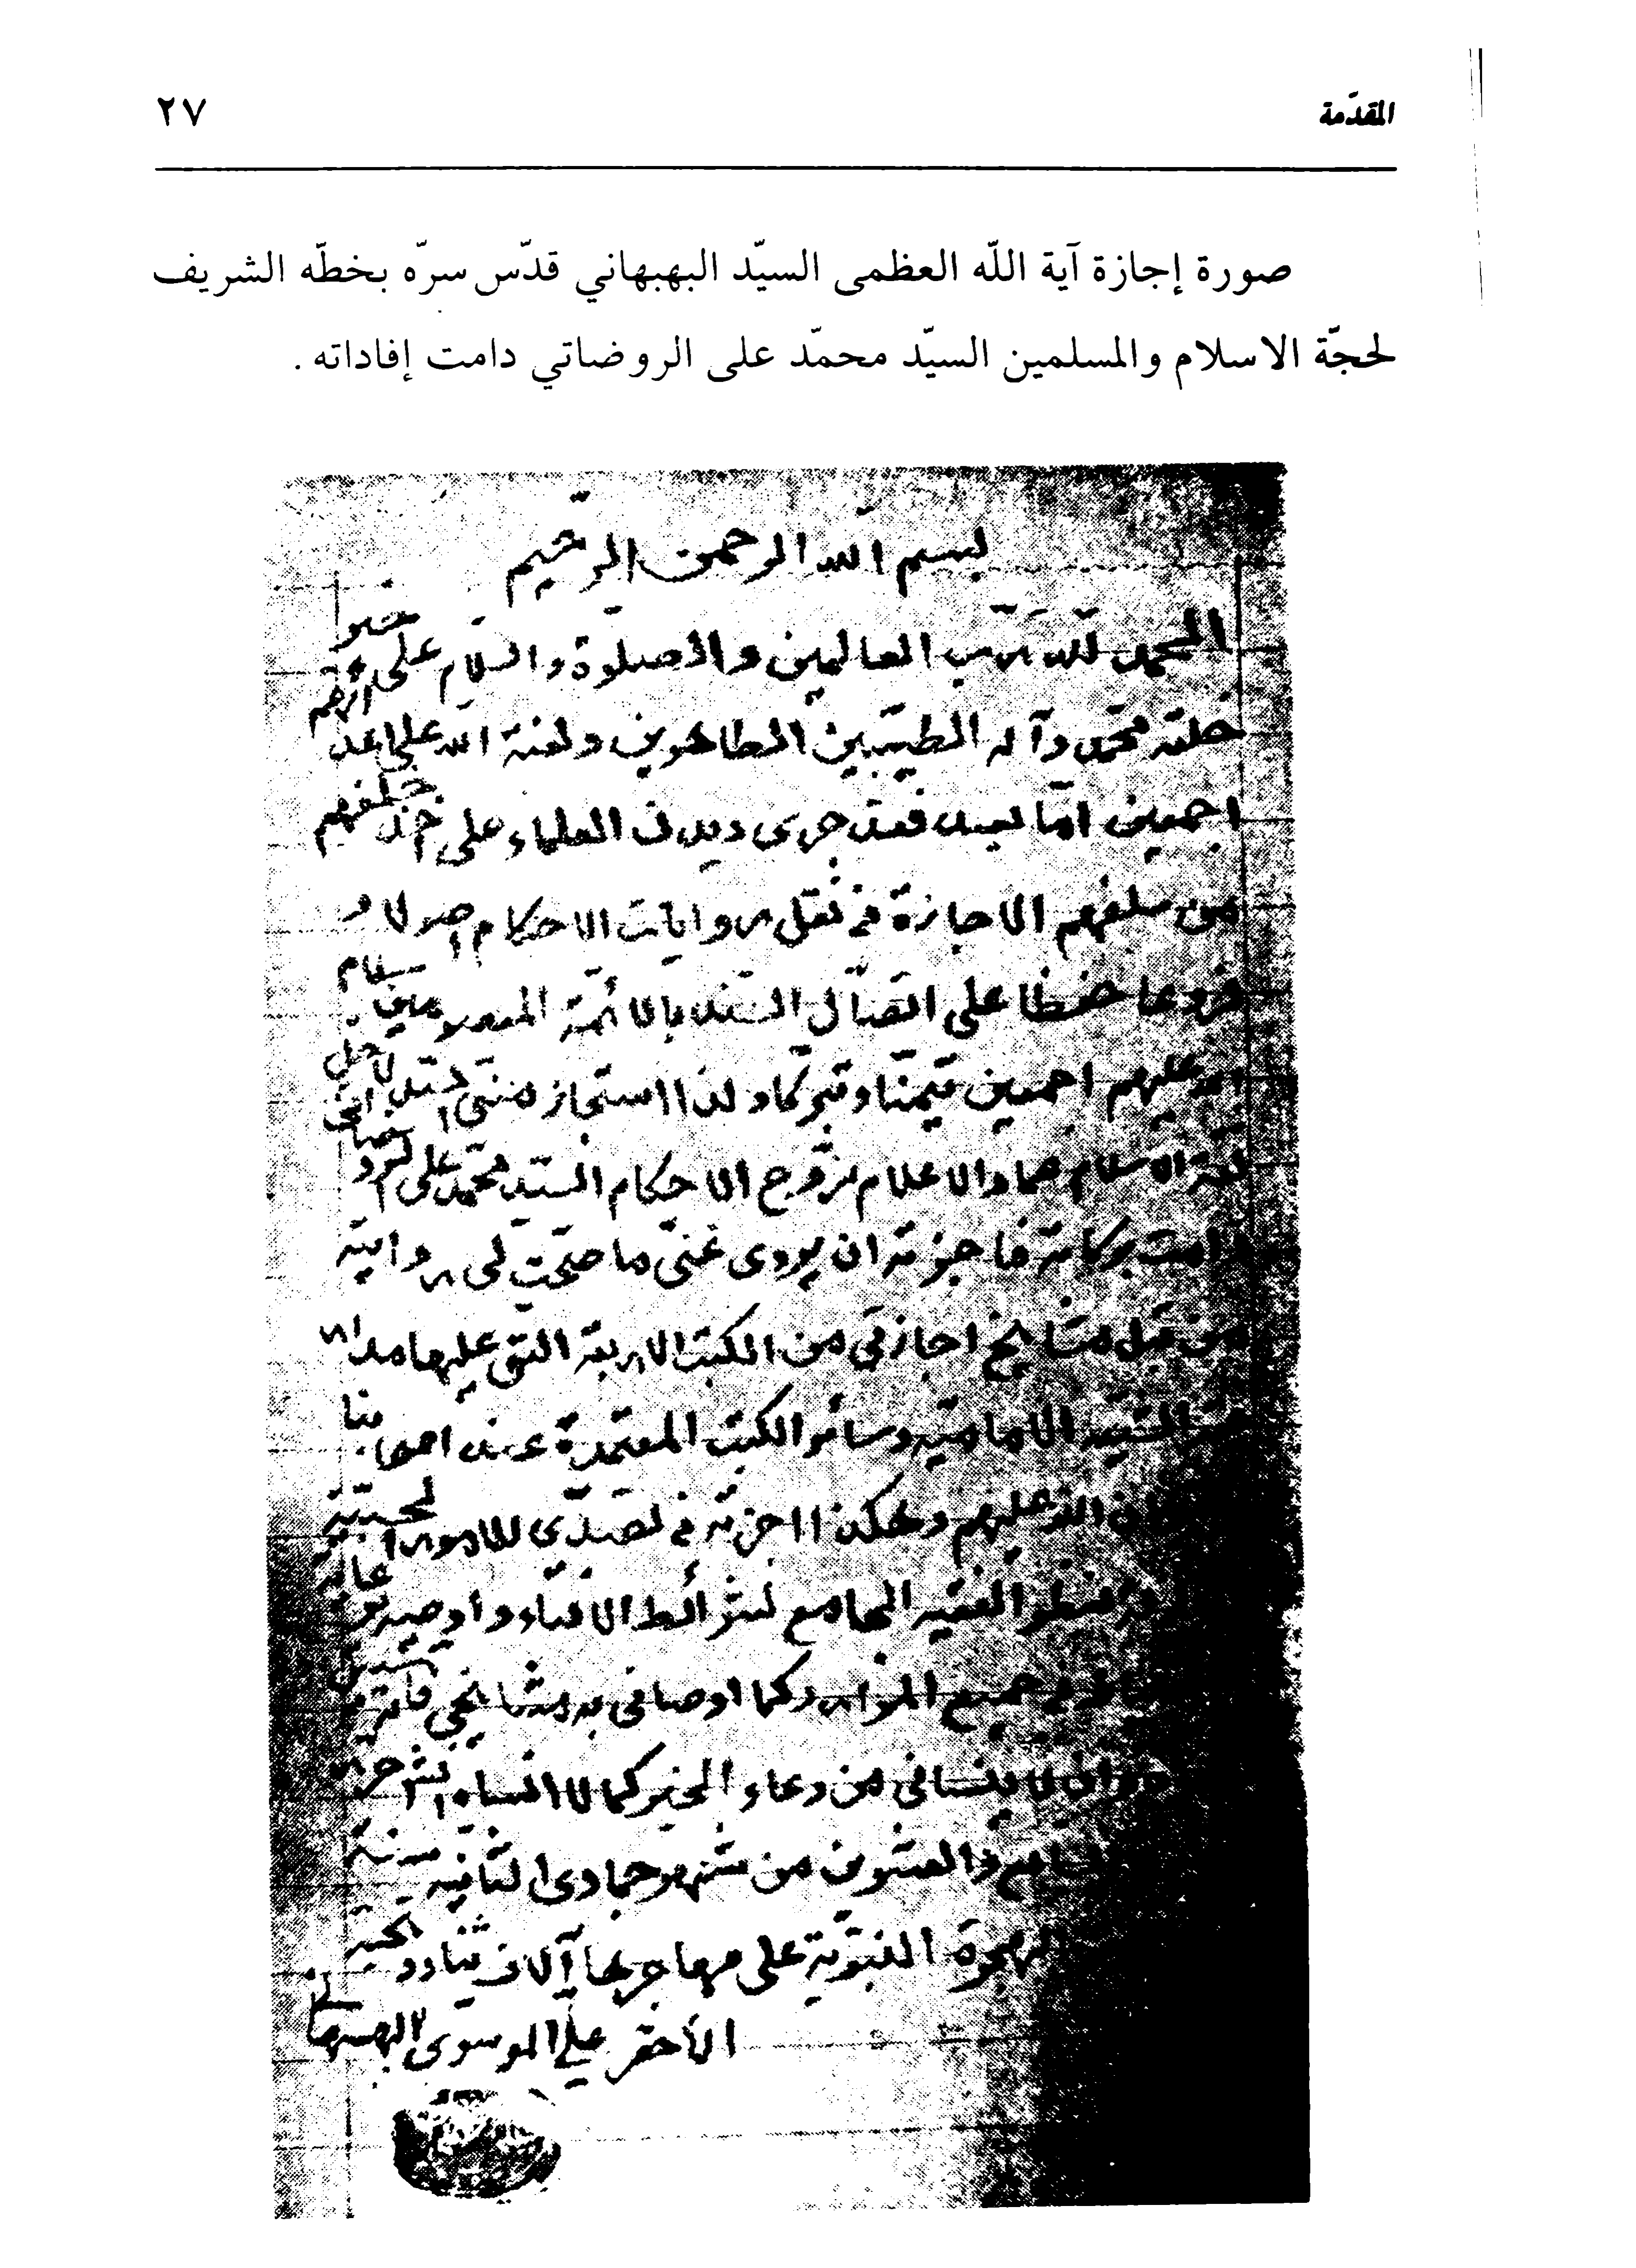 المقدّمة ٢٧
صورة إجازة آية اللّه العظمى السيّد البهبهاني قدّس سرّه بخطّه الشريف
لحجّة الاسلام والمسلمين السيّد محمّد على الروضاتي دامت إفاداته .
بسم الله الرحمن الرّحيم
الحمد للّه ربّ العالمين والصلوة والسّلام على خير
خلقه محمّد وآله الطيّبين الطاهرين ولعنة اللّه على اعدائهم
اجمعين امّا بعد فقد جرى ديدن العلماء على اخذ خلفهم
من سلفهم الاجازة في نقل روايات الاحكام اصولا و
فروعا حفظا على اتّصال السّند بالائمّة المعصومين سلام
اللّه عليهم اجمعين تيمّنا وتبرّكا ولذا استجاز منّى
ثقة الاسلام عماد الاعلام مروّج الاحكام السيّد محمّد على الروضاتى
دامت بركاته فاجزته ان يروى عنّى ما صحّت لى روايته
من قبل مشايخ اجازتى من الكتب الاربعة التى عليها مدار
الشيعه الاماميّه وسائر الكتب المعتمدة عند اصحابنا
اللّه عليهم وهكذا اجزته في تصدّى الامور الحسبيّة
الفقيه الجامع لشرائط الافتاء واوصيه
جميع الموارد كما اوصانى به مشايخى
وان لا ينسانى من دعاء الخير كما لا انساه
والعشرون من شهر جمادى الثانيه سنة
الهجرة النبويّة على مهاجرها آلاف ثناء وتحيّة
الأحقر علي الموسوى البهبهانى